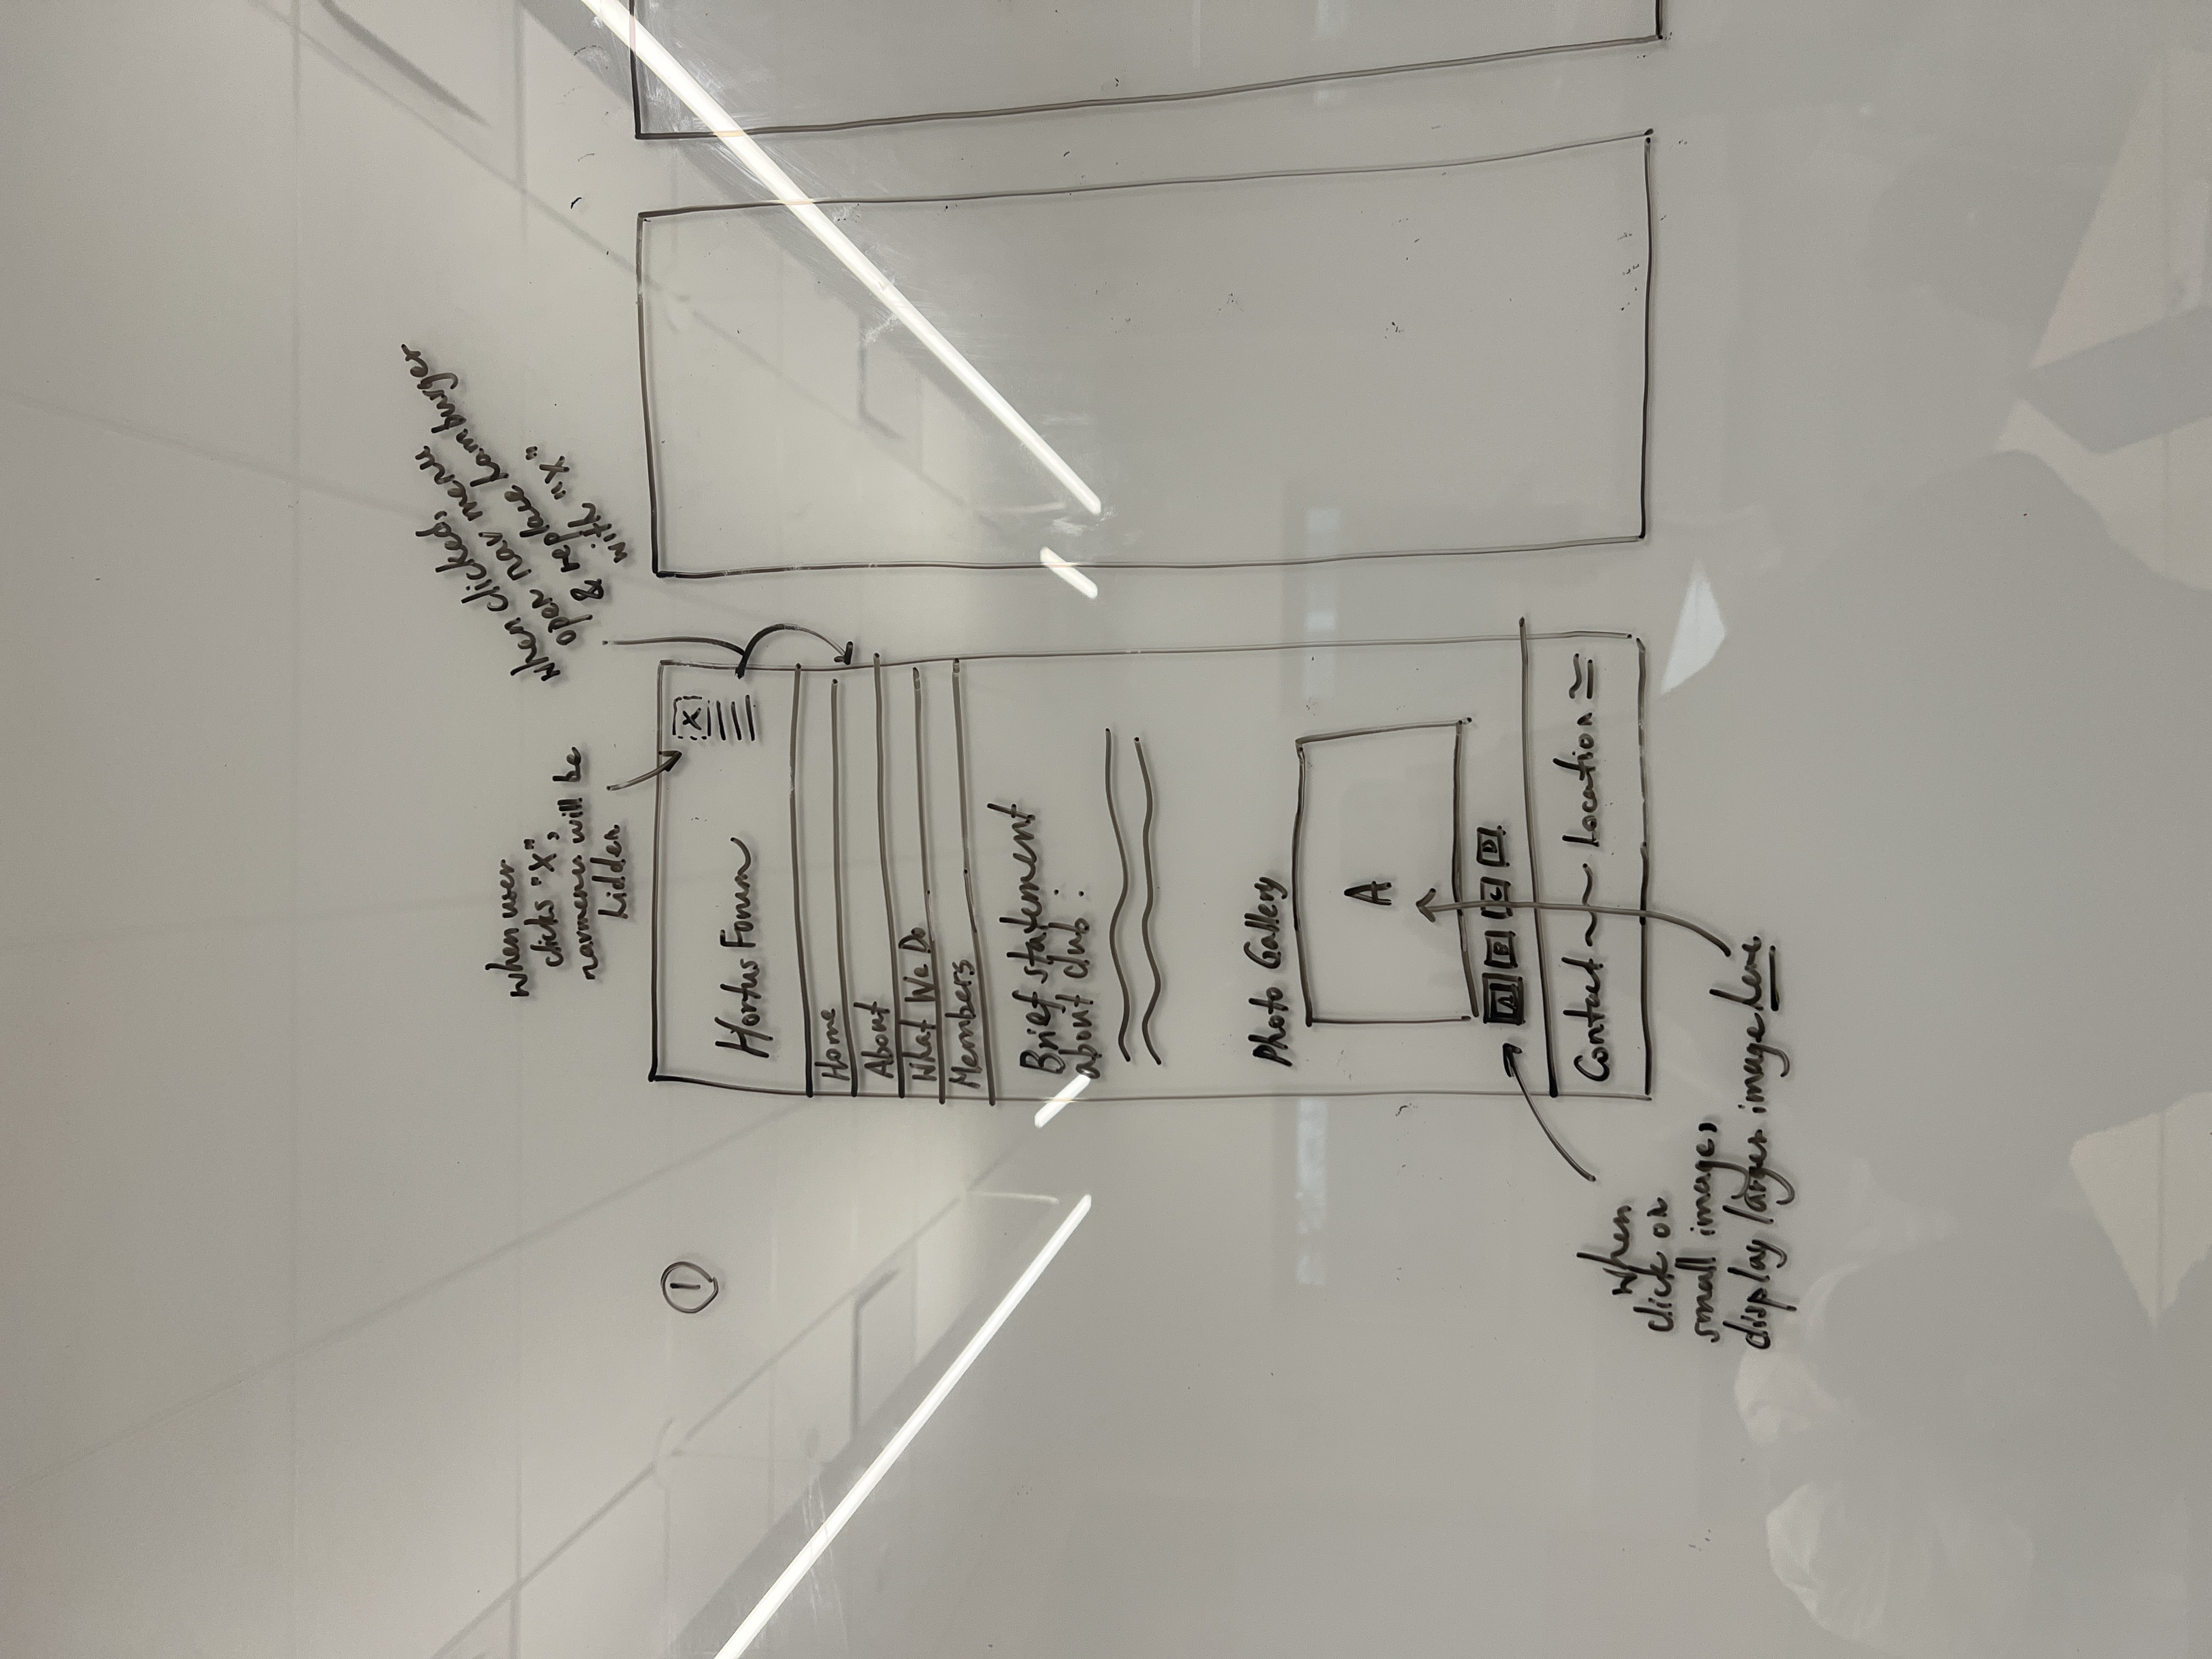 when user
clicks "X",
navmenu will be
hidden
when clicked,
open nav menu
& replace hamburger
with "X"
1
X
Hortus Forum
Home
About
What We Do
Members
Brief statement
about club:
Photo Gallery
A
A B C D
Contact Location
when
click on
small image,
display larger image here